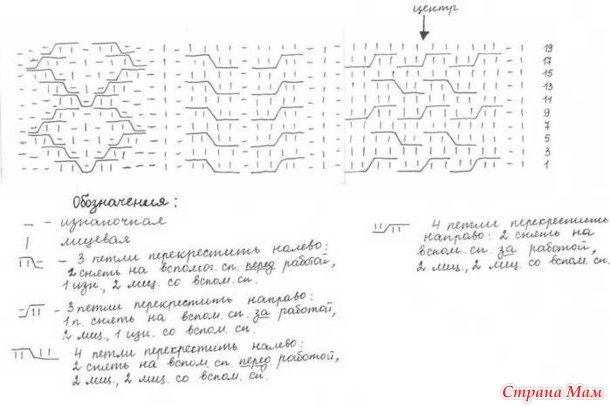 центр
19
17
15
13
11
9
7
5
3
1
Обозначения:
— - изнаночная
| лицевая
- 3 петли перекрестить налево:
2 снять на вспомог. сп. перед работой,
1 изн., 2 лиц. со вспом. сп.
- 3 петли перекрестить направо:
1 п. снять на вспом. сп. за работой,
2 лиц., 1 изн. со вспом. сп.
4 петли перекрестить налево:
2 снять на вспом. сп. перед работой,
2 лиц., 2 лиц. со вспом. сп.
4 петли перекрестить
направо: 2 снять на
вспом. сп. за работой,
2 лиц., 2 лиц. со вспом. сп.
Страна Мам